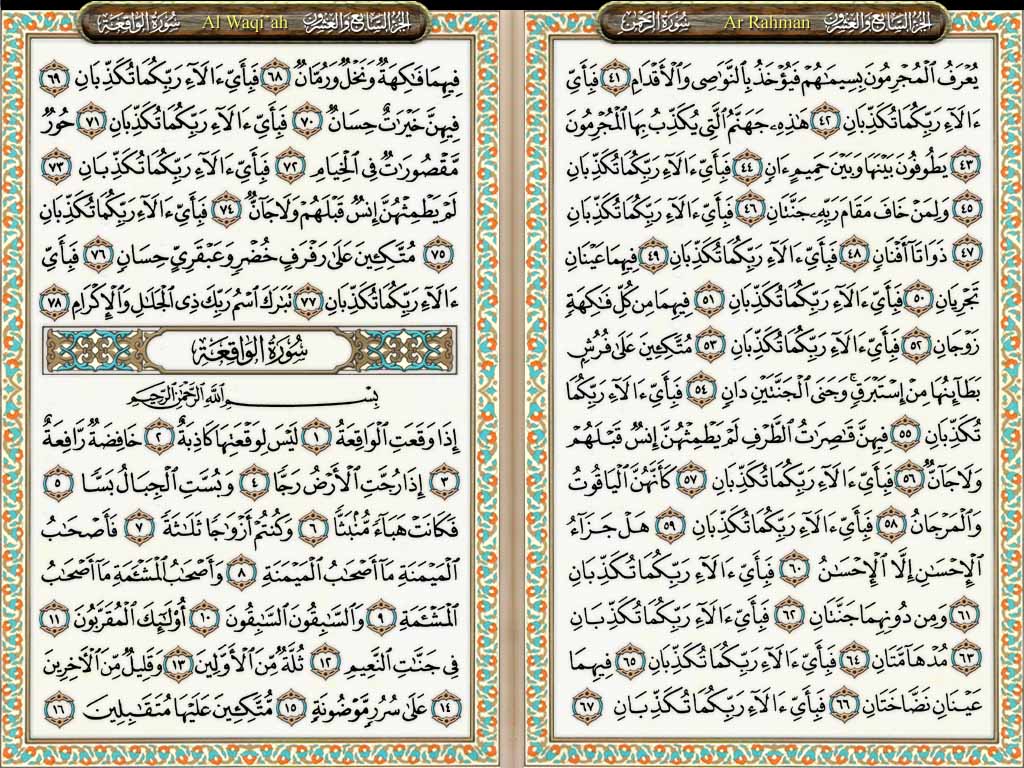 الجزء السابع والعشرون Ar Rahman سورة الرحمن
يُعْرَفُ الْمُجْرِمُونَ بِسِيمَـٰهُمْ فَيُؤْخَذُ بِالنَّوَٰصِى وَالْأَقْدَامِ ٤١ فَبِأَيِّ
ءَالَآءِ رَبِّكُمَا تُكَذِّبَانِ ٤٢ هَـٰذِهِۦ جَهَنَّمُ الَّتِى يُكَذِّبُ بِهَا الْمُجْرِمُونَ
٤٣ يَطُوفُونَ بَيْنَهَا وَبَيْنَ حَمِيمٍ ءَانٍ ٤٤ فَبِأَيِّ ءَالَآءِ رَبِّكُمَا تُكَذِّبَانِ
٤٥ وَلِمَنْ خَافَ مَقَامَ رَبِّهِۦ جَنَّتَانِ ٤٦ فَبِأَيِّ ءَالَآءِ رَبِّكُمَا تُكَذِّبَانِ
٤٧ ذَوَاتَآ أَفْنَانٍ ٤٨ فَبِأَيِّ ءَالَآءِ رَبِّكُمَا تُكَذِّبَانِ ٤٩ فِيهِمَا عَيْنَانِ
تَجْرِيَانِ ٥٠ فَبِأَيِّ ءَالَآءِ رَبِّكُمَا تُكَذِّبَانِ ٥١ فِيهِمَا مِن كُلِّ فَـٰكِهَةٍ
زَوْجَانِ ٥٢ فَبِأَيِّ ءَالَآءِ رَبِّكُمَا تُكَذِّبَانِ ٥٣ مُتَّكِـِٔينَ عَلَىٰ فُرُشٍ
بَطَآئِنُهَا مِنْ إِسْتَبْرَقٍ ۚ وَجَنَى الْجَنَّتَيْنِ دَانٍ ٥٤ فَبِأَيِّ ءَالَآءِ رَبِّكُمَا
تُكَذِّبَانِ ٥٥ فِيهِنَّ قَـٰصِرَٰتُ الطَّرْفِ لَمْ يَطْمِثْهُنَّ إِنسٌ قَبْلَهُمْ
وَلَا جَآنٌّ ٥٦ فَبِأَيِّ ءَالَآءِ رَبِّكُمَا تُكَذِّبَانِ ٥٧ كَأَنَّهُنَّ الْيَاقُوتُ
وَالْمَرْجَانُ ٥٨ فَبِأَيِّ ءَالَآءِ رَبِّكُمَا تُكَذِّبَانِ ٥٩ هَلْ جَزَآءُ
الْإِحْسَـٰنِ إِلَّا الْإِحْسَـٰنُ ٦٠ فَبِأَيِّ ءَالَآءِ رَبِّكُمَا تُكَذِّبَانِ
٦١ وَمِن دُونِهِمَا جَنَّتَانِ ٦٢ فَبِأَيِّ ءَالَآءِ رَبِّكُمَا تُكَذِّبَانِ
٦٣ مُدْهَآمَّتَانِ ٦٤ فَبِأَيِّ ءَالَآءِ رَبِّكُمَا تُكَذِّبَانِ ٦٥ فِيهِمَا
عَيْنَانِ نَضَّاخَتَانِ ٦٦ فَبِأَيِّ ءَالَآءِ رَبِّكُمَا تُكَذِّبَانِ ٦٧
الجزء السابع والعشرون Al Waqi ah سورة الواقعة
فِيهِمَا فَـٰكِهَةٌ وَنَخْلٌ وَرُمَّانٌ ٦٨ فَبِأَيِّ ءَالَآءِ رَبِّكُمَا تُكَذِّبَانِ ٦٩
فِيهِنَّ خَيْرَٰتٌ حِسَانٌ ٧٠ فَبِأَيِّ ءَالَآءِ رَبِّكُمَا تُكَذِّبَانِ ٧١ حُورٌ
مَّقْصُورَٰتٌ فِى الْخِيَامِ ٧٢ فَبِأَيِّ ءَالَآءِ رَبِّكُمَا تُكَذِّبَانِ ٧٣
لَمْ يَطْمِثْهُنَّ إِنسٌ قَبْلَهُمْ وَلَا جَآنٌّ ٧٤ فَبِأَيِّ ءَالَآءِ رَبِّكُمَا تُكَذِّبَانِ
٧٥ مُتَّكِـِٔينَ عَلَىٰ رَفْرَفٍ خُضْرٍ وَعَبْقَرِىٍّ حِسَانٍ ٧٦ فَبِأَيِّ
ءَالَآءِ رَبِّكُمَا تُكَذِّبَانِ ٧٧ تَبَـٰرَكَ اسْمُ رَبِّكَ ذِى الْجَلَـٰلِ وَالْإِكْرَامِ ٧٨
سُورَةُ الْوَاقِعَةِ
بِسْمِ اللَّهِ الرَّحْمَـٰنِ الرَّحِيمِ
إِذَا وَقَعَتِ الْوَاقِعَةُ ١ لَيْسَ لِوَقْعَتِهَا كَاذِبَةٌ ٢ خَافِضَةٌ رَّافِعَةٌ
٣ إِذَا رُجَّتِ الْأَرْضُ رَجًّا ٤ وَبُسَّتِ الْجِبَالُ بَسًّا ٥
فَكَانَتْ هَبَآءً مُّنۢبَثًّا ٦ وَكُنتُمْ أَزْوَٰجًا ثَلَـٰثَةً ٧ فَأَصْحَـٰبُ
الْمَيْمَنَةِ مَآ أَصْحَـٰبُ الْمَيْمَنَةِ ٨ وَأَصْحَـٰبُ الْمَشْـَٔمَةِ مَآ أَصْحَـٰبُ
الْمَشْـَٔمَةِ ٩ وَالسَّـٰبِقُونَ السَّـٰبِقُونَ ١٠ أُو۟لَـٰٓئِكَ الْمُقَرَّبُونَ ١١
فِى جَنَّـٰتِ النَّعِيمِ ١٢ ثُلَّةٌ مِّنَ الْأَوَّلِينَ ١٣ وَقَلِيلٌ مِّنَ الْـَٔاخِرِينَ
١٤ عَلَىٰ سُرُرٍ مَّوْضُونَةٍ ١٥ مُّتَّكِـِٔينَ عَلَيْهَا مُتَقَـٰبِلِينَ ١٦